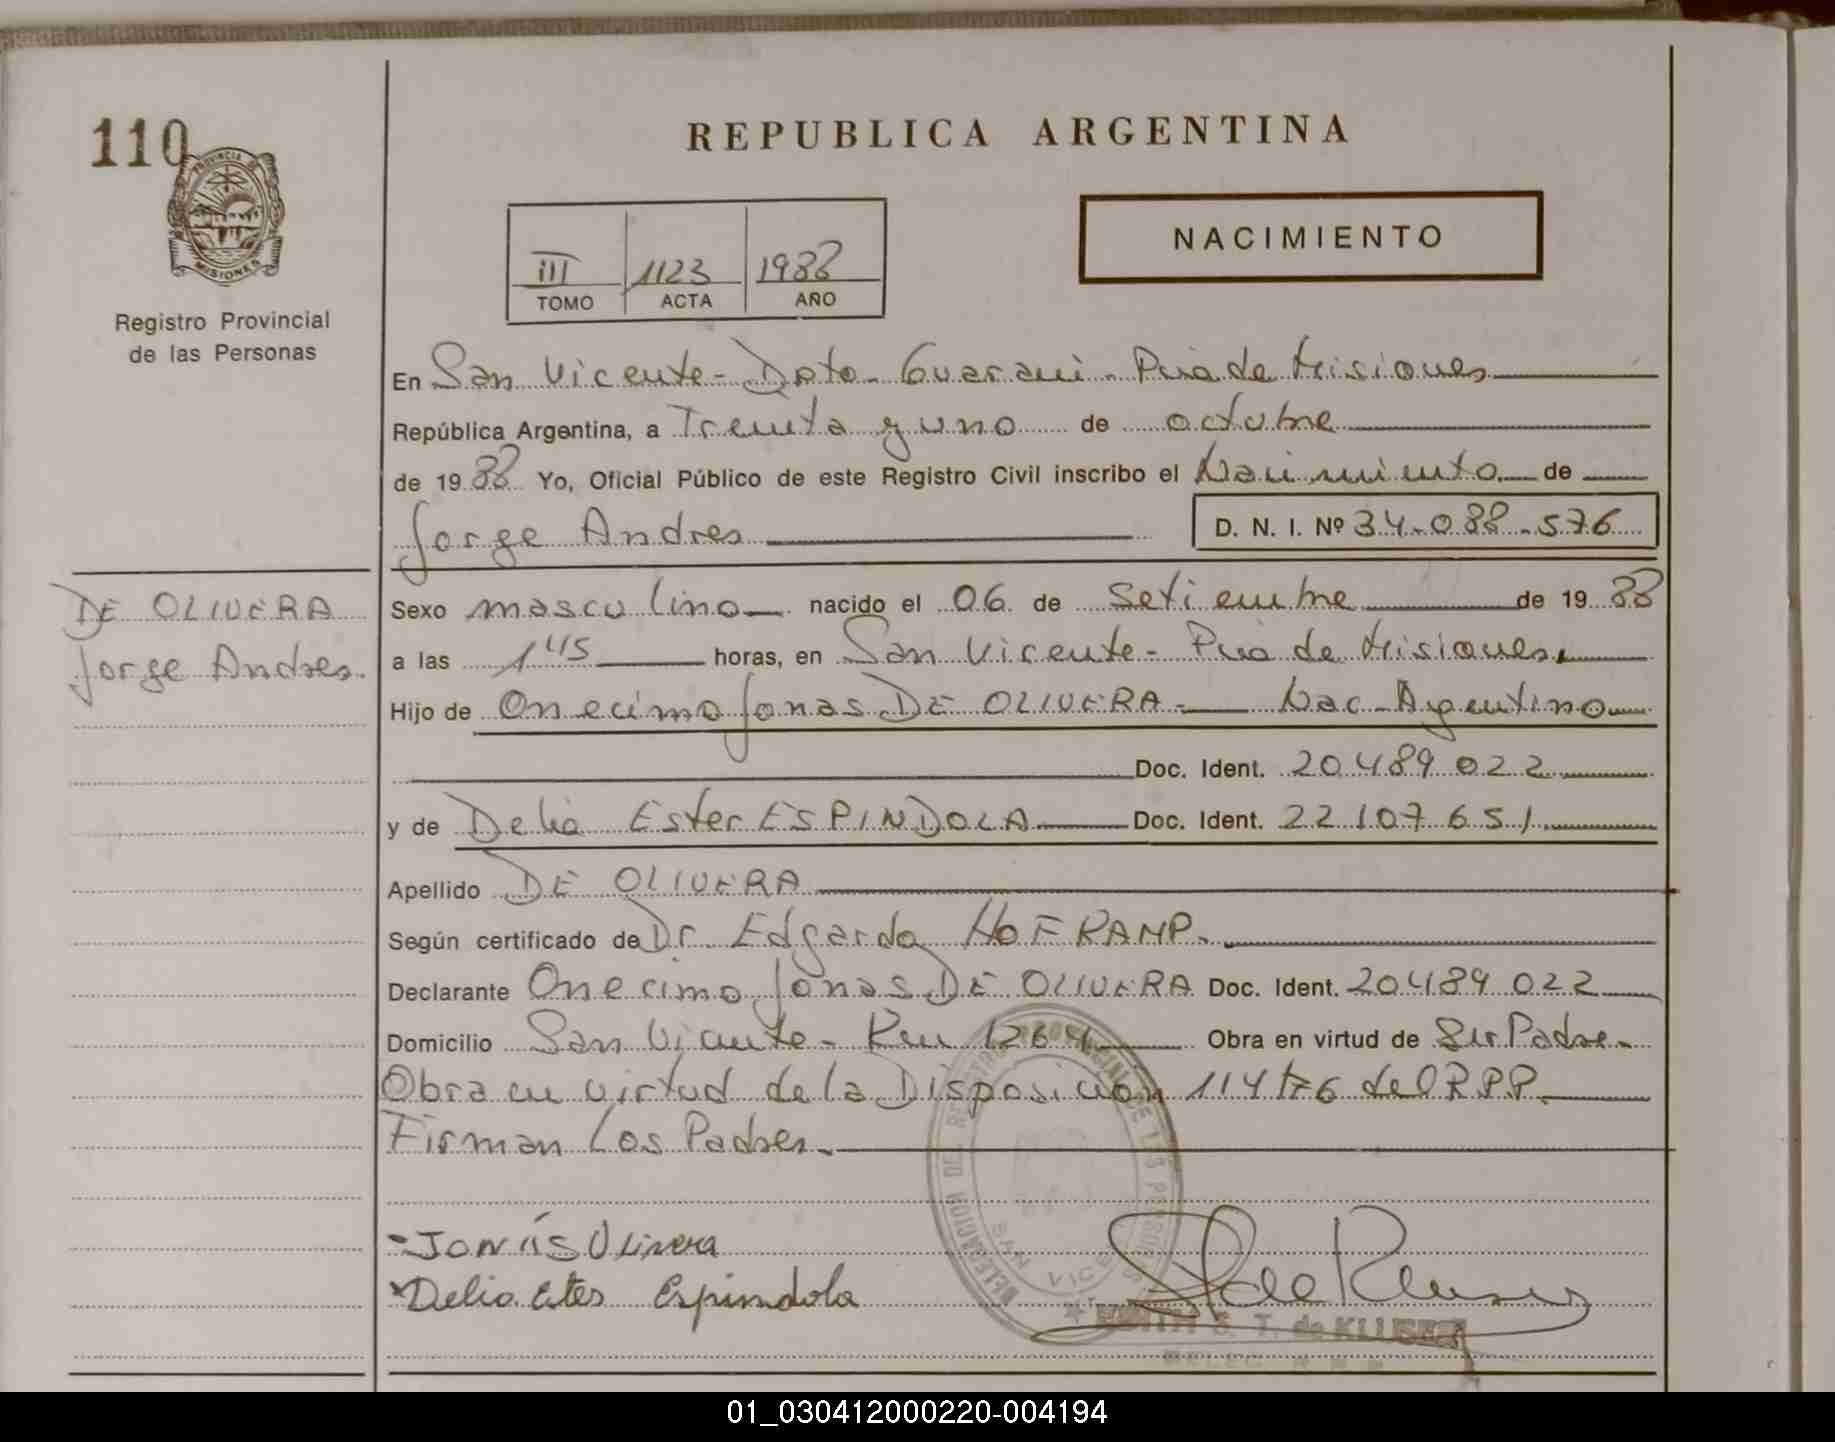 110
PROVINCIA DE
MISIONES
Registro Provincial
de las Personas
REPUBLICA ARGENTINA
III 1123 1988
TOMO ACTA AÑO
NACIMIENTO
En San Vicente - Dpto - Guarani - Pcia de Misiones
República Argentina, a Treinta y uno de octubre
de 1988 Yo, Oficial Público de este Registro Civil inscribo el Nacimiento de
Jorge Andres D. N. I. Nº 34.088.576
DE OLIVERA
Jorge Andres.
Sexo masculino nacido el 06 de Setiembre de 1988
a las 1 45 horas, en San Vicente - Pcia de Misiones.
Hijo de Onecimo Jonas DE OLIVERA - Nac - Argentino
Doc. Ident. 20 489 022
y de Delia Ester ESPINDOLA Doc. Ident. 22 107 651
Apellido DE OLIVERA
Según certificado de Dr. Edgardo HOFRAMP.
Declarante Onecimo Jonas DE OLIVERA Doc. Ident. 20 489 022
Domicilio San Vicente - Km 1264 Obra en virtud de Ser Padre.
Obra en virtud de la Disposicion 114/76 del R.P.P.
Firman Los Padres.
DELEGACION DEL REGISTRO PROVINCIAL DE LAS PERSONAS
SAN VICENTE
- Jonás Olivera
Delia Ester Espindola
S. T. de KLUSE
01_030412000220-004194